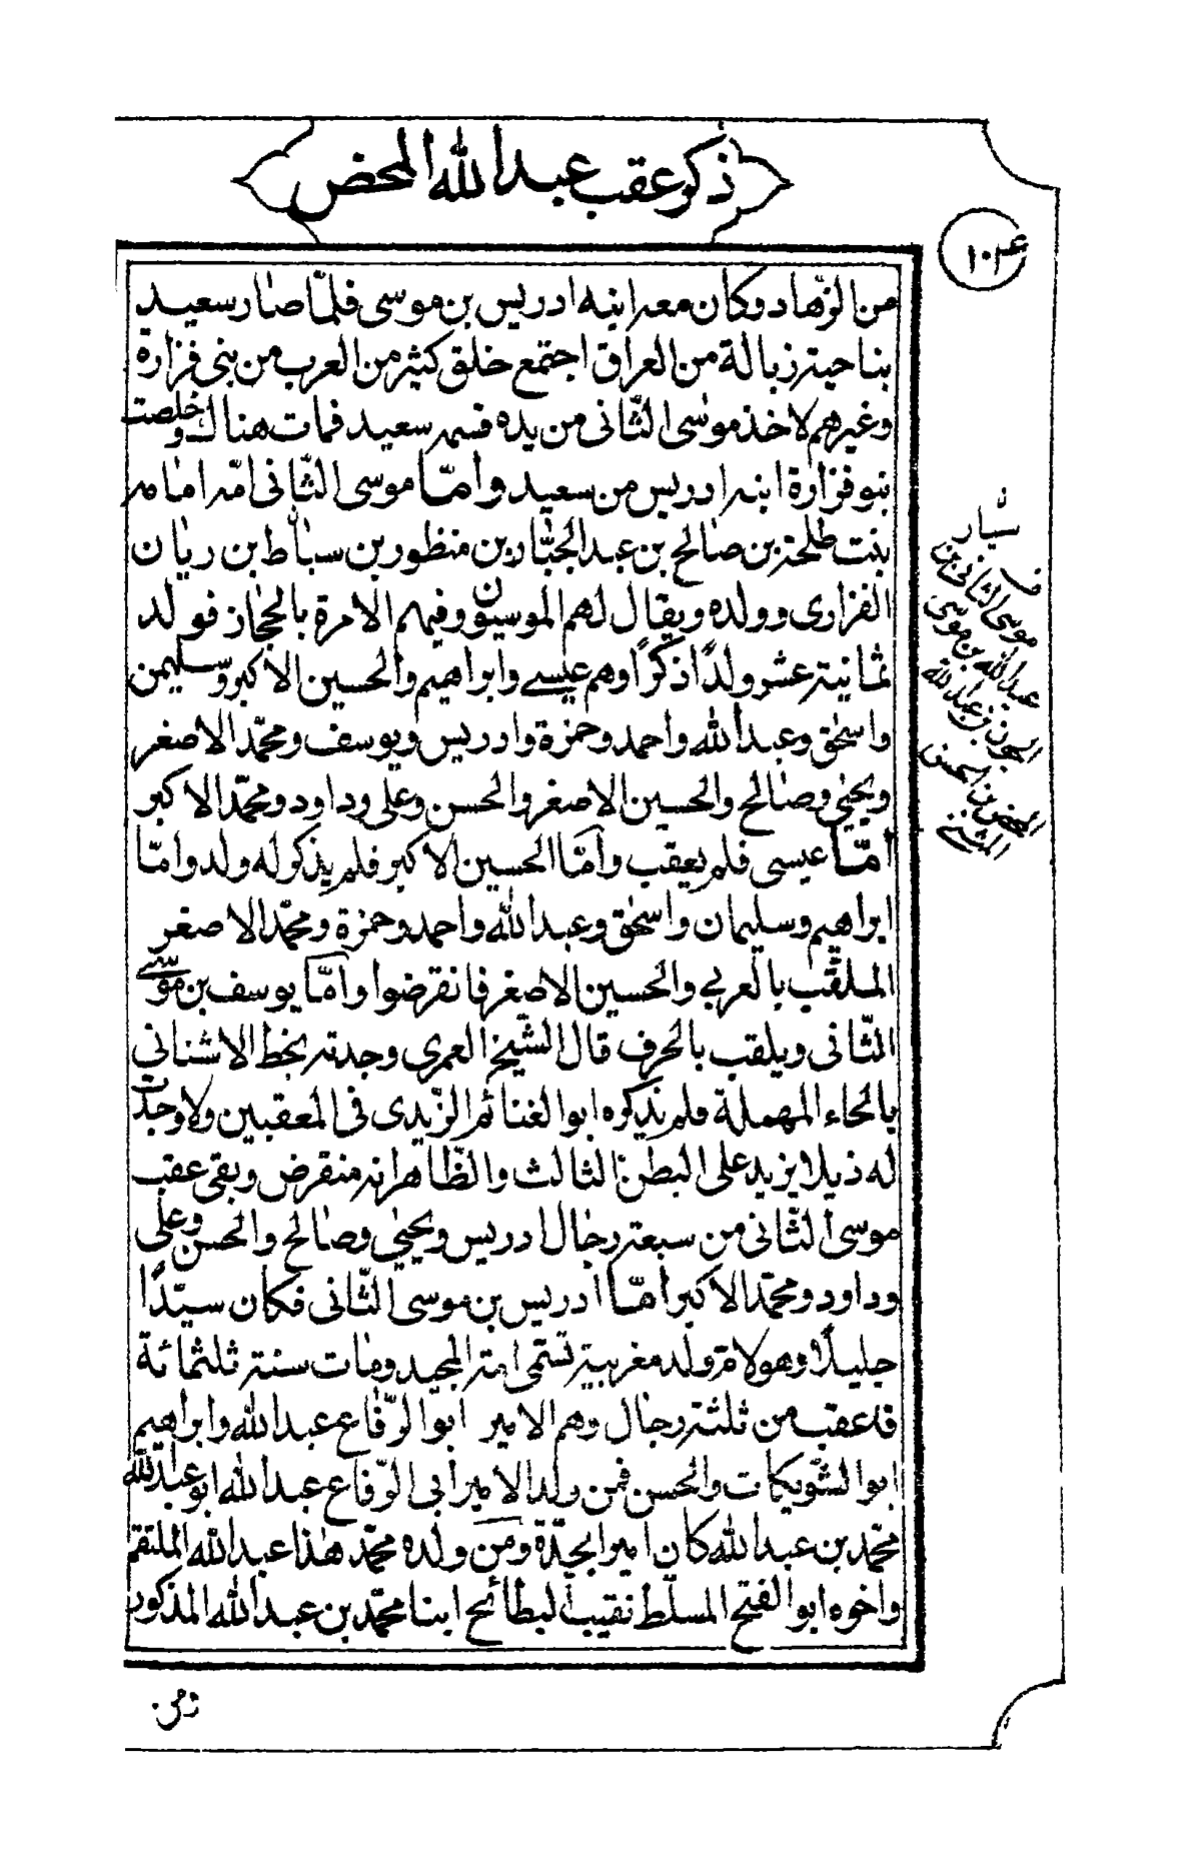 ذكر عقب عبدالله المحض
١٠٤
من الزهاد وكان معه ابنه ادريس بن موسى فلمّا صار سعيد
بناحية زبالة من العراق اجتمع خلق كثير من العرب من بنى فزارة
وغيرهم لاخذ موسى الثّانى من يده فسمه سعيد فمات هناك وخلصت
بنو فزارة ابنه ادريس من سعيد وامّا موسى الثّانى امّه امامه
بنت طلحة بن صالح بن عبدالجبّار بن منظور بن سباط بن ريان
الفزارى وولده ويقال لهم الموسيون وفيهم الامرة بالحجاز فولد
ثمانية عشر ولدًا ذكرًا وهم عيسى وابراهيم والحسين الاكبر وسليمن
واسحٰق وعبدالله واحمد وحمزة وادريس ويوسف ومحمّد الاصغر
ويحيٰى وصالح والحسين الاصغر والحسن وعلى وداود ومحمّد الاكبر
أمّا عيسى فلم يعقب وأمّا الحسين الاكبر فلم يذكر له ولد وامّا
ابراهيم وسليمان واسحٰق وعبدالله واحمد وحمزة ومحمّد الاصغر
الملقّب بالعربى والحسين الاصغر فانقرضوا وأمّا يوسف بن موسى
الثّانى ويلقب بالحرف قال الشّيخ العمرى وجدته بخط الاشنانى
بالحاء المهملة فلم يذكره ابو الغنائم الزّيدى فى المعقبين ولا وجدت
له ذيلا يزيد على البطن الثالث والظّاهر انه منقرض وبقى عقب
موسى الثّانى من سبعة رجال ادريس ويحيٰى وصالح والحسن وعلى
وداود ومحمّد الاكبر أمّا ادريس بن موسى الثّانى فكان سيّدًا
جليلًا وهو لامّ ولد مغربية تسمّى امة المجيد ومات سنة ثلثمائة
فاعقب من ثلثة رجال وهم الامير ابو الرّفاع عبدالله وابراهيم
ابو الشّويكات والحسن فمن ولد الامير أبى الرّفاع عبدالله ابو عبدالله
محمّد بن عبدالله كان امير الجدّة ومن ولده محمّد هٰذا عبدالله الملتقم
واخوه ابو الفتح المسلّط نقيب البطائح ابنا محمّد بن عبدالله المذكور
موسى الثانى بن
عبدالله بن موسى
الجون بن عبدالله
المحض بن الحسن
المثنى